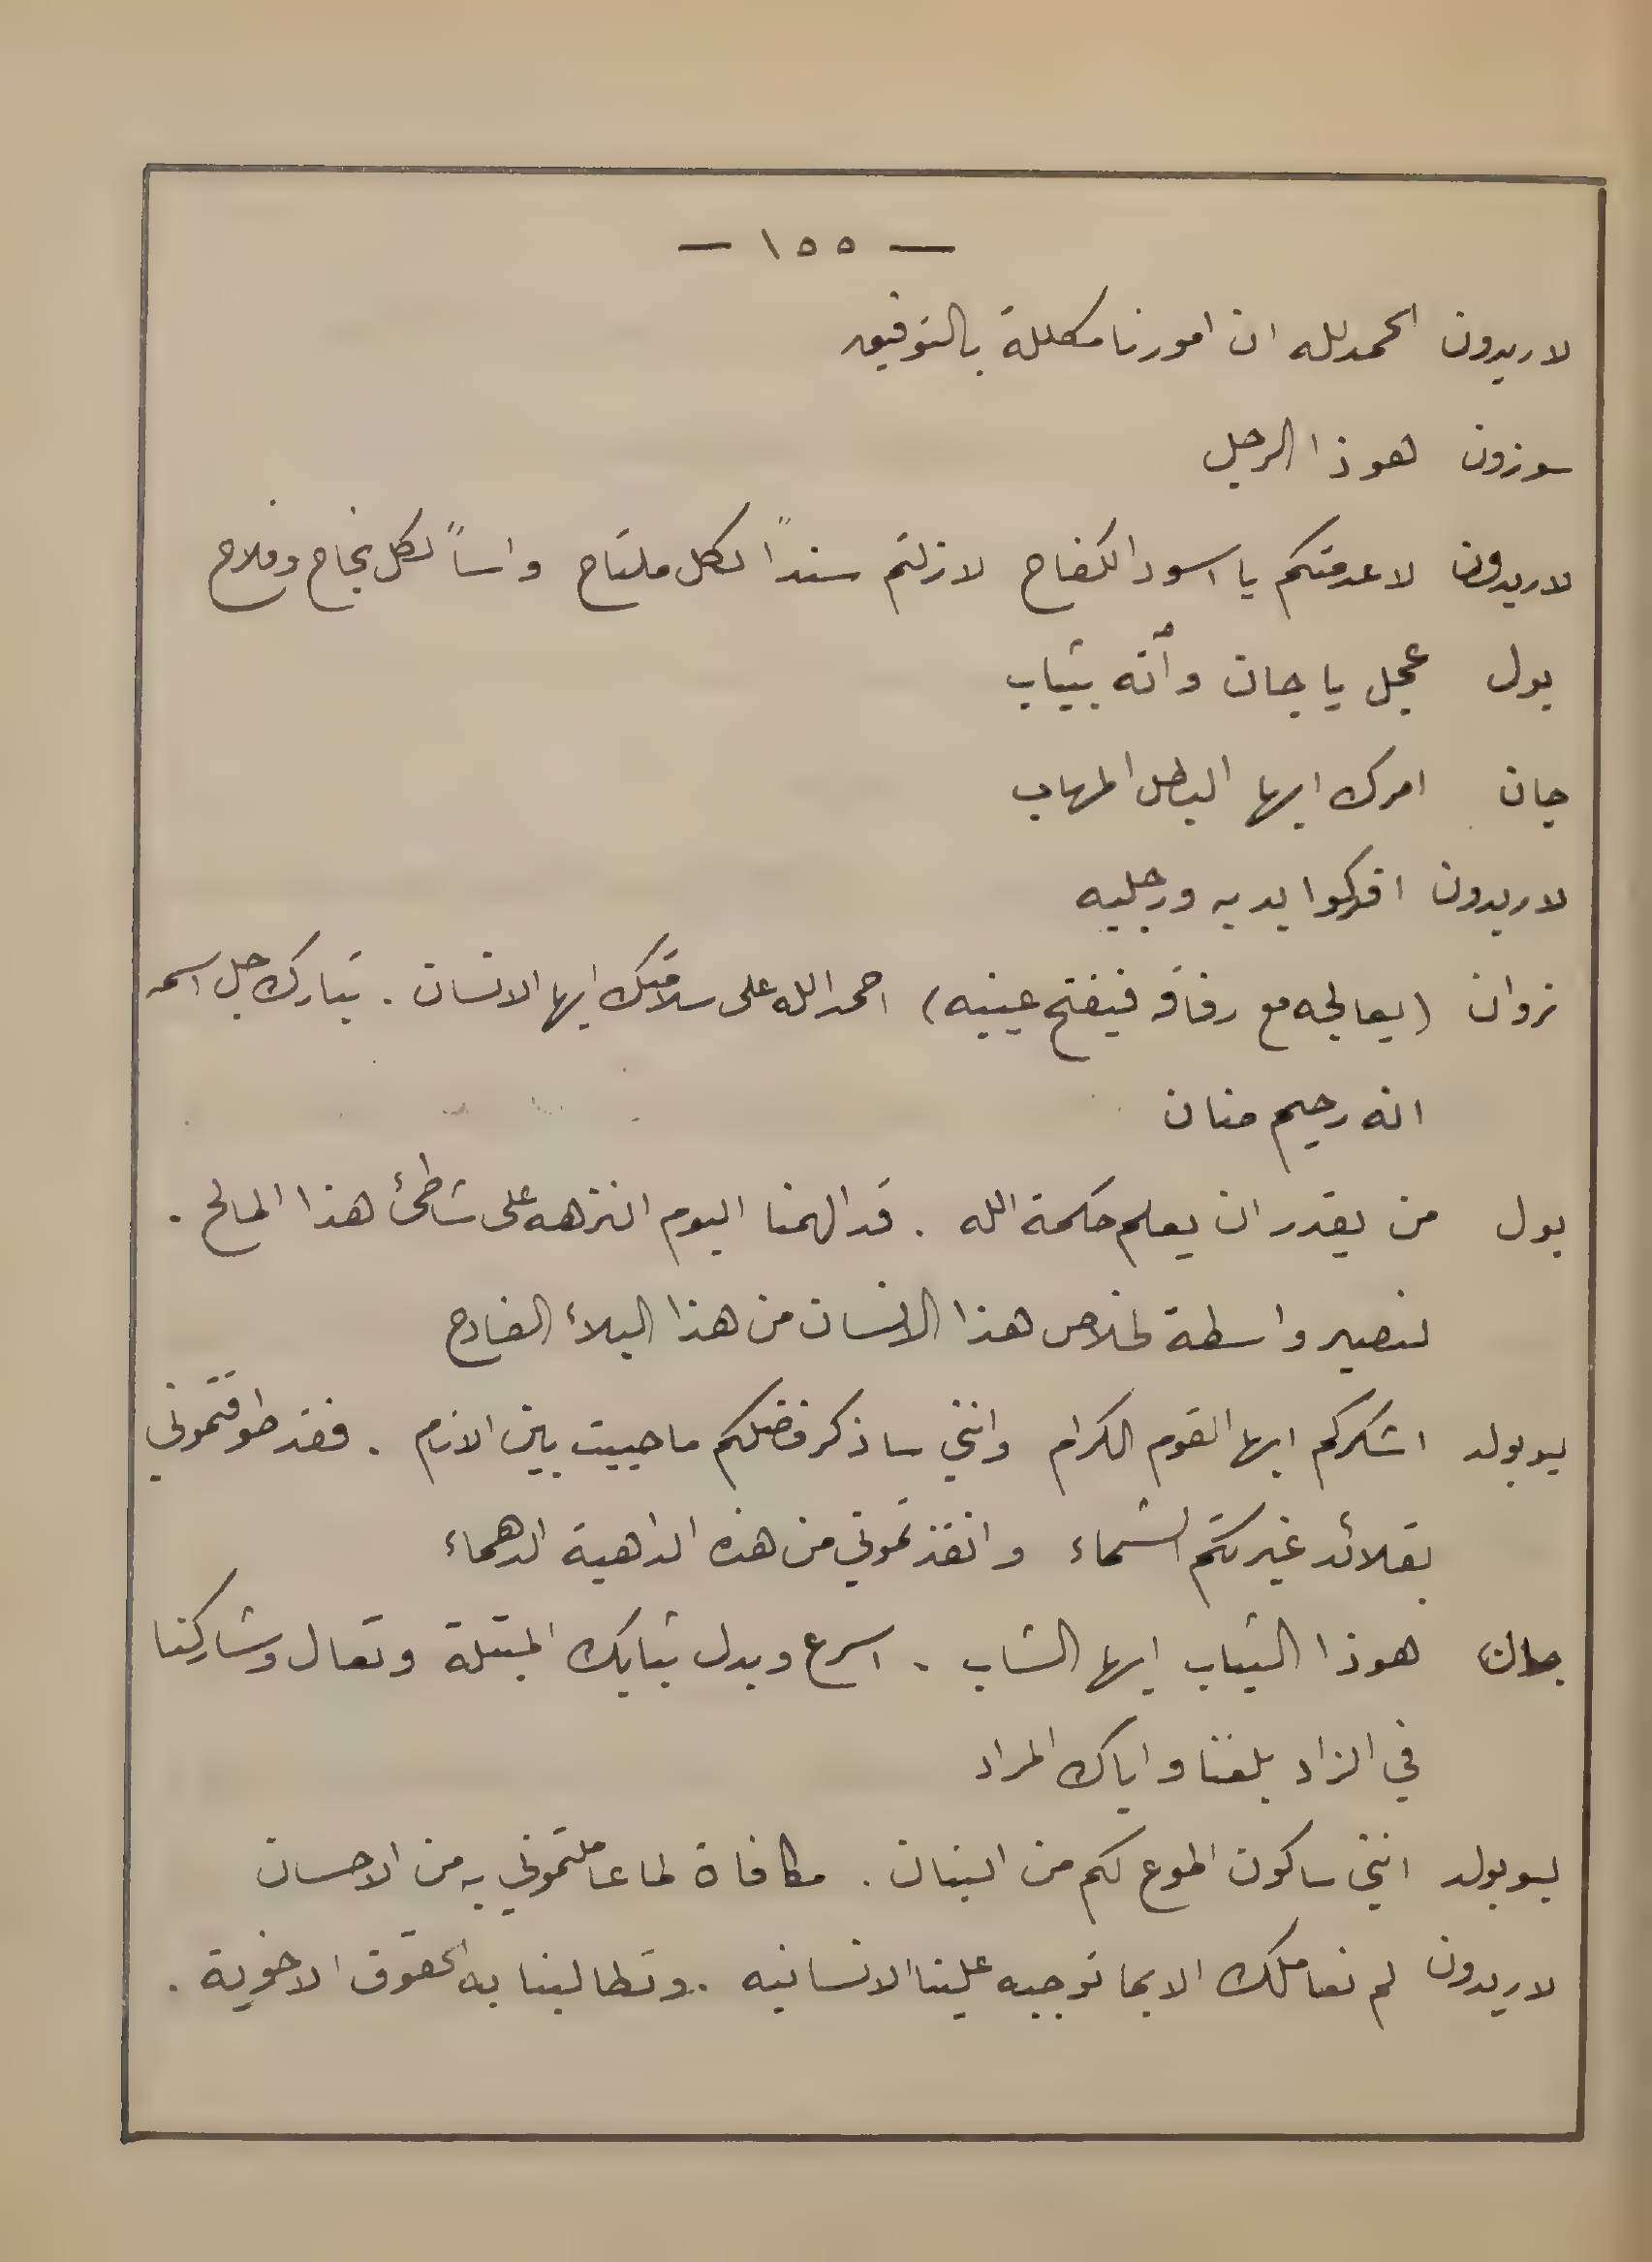 — ١٥٥ —
لاريدون الحمدلله ان امورنا مكللة بالتوفيق
سوزون هوذا الرجل
لاريدون لا عدمتكم يا اسود الكفاح لازلتم سنداً لكل ملتاح واساً لكل نجاح وفلاح
بول عجل يا جان وأته بثياب
جان امرك ايها البطل المهاب
لاريدون افركوا يديه ورجليه
نروان (يعالجه مع رفاقه فيفتح عينيه) احمد الله على سلامتك ايها الانسان . تبارك جل اسمه
انه رحيم منان
بول من يقدر ان يعلم حكمة الله . قد الهمنا اليوم النزهه على شاطئ هذا المالح .
لنصير واسطة لخلاص هذا الانسان من هذا البلاء الفادح
ليوبولد اشكركم ايها القوم الكرام وانني ساذكر فضلكم ما حييت بين الانام . فقد طوقتموني
بقلائد غيرتكم الشماء وانقذتموني من هذه الداهية الدهماء
جان هوذا الثياب ايها الشاب . اسرع وبدل ثيابك المبتلة وتعال وشاركنا
في الزاد بلغنا واياك المراد
ليوبولد انني ساكون اطوع لكم من البنان . مكافاة لما عاملتموني به من الاحسان
لاريدون لم نعاملك الا بما توجبه علينا الانسانيه . وتطالبنا به الحقوق الاخوية .